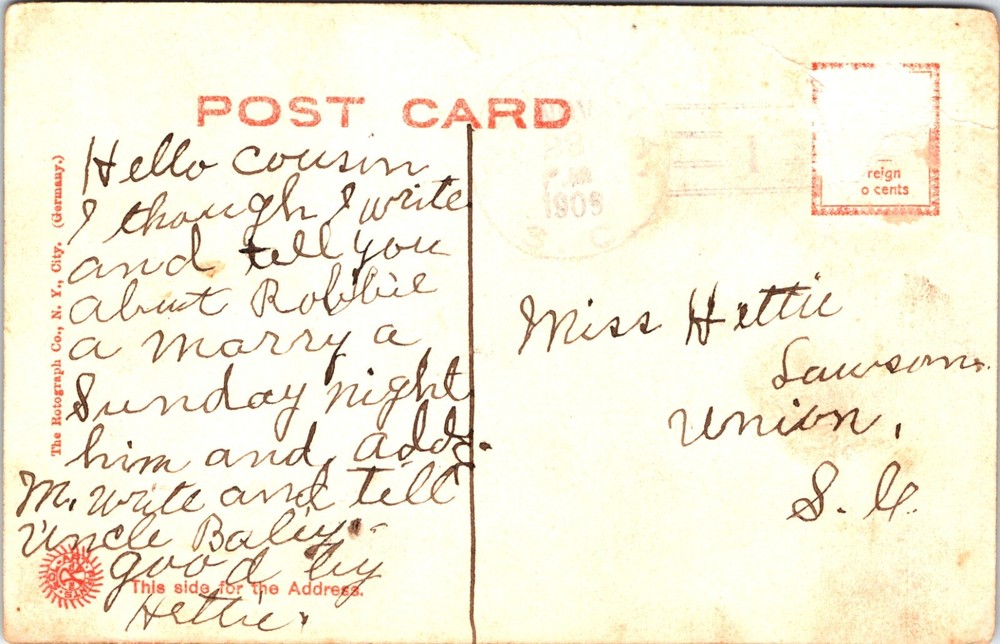 POST CARD
The Rotograph Co., N. Y., City. (Germany.)
Hello Cousin
I though I write
and tell you
about Robbie
a marry a
Sunday night
him and Adds.
M. write and tell
Uncle Baley.
good by
Hettie.
This side for the Address.
23
1909
S. C.
reign
o cents
Miss Hettie
Lawson.
Union,
S. C.